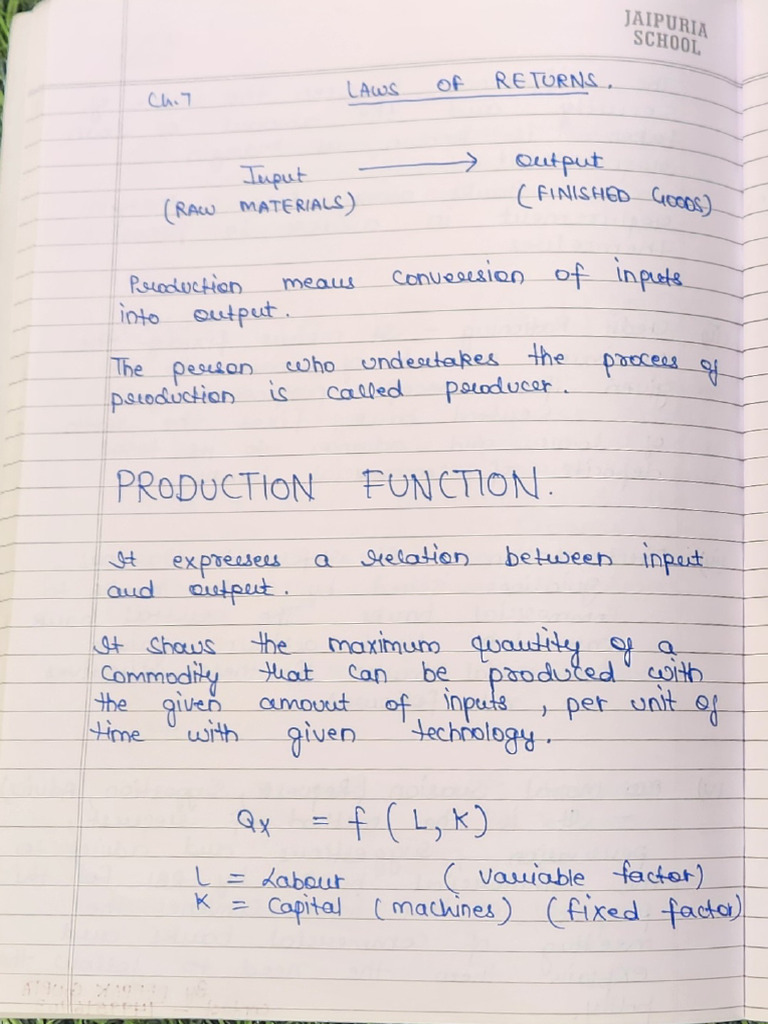 JAIPURIA
SCHOOL
Ch.7 LAWS OF RETURNS.
Input ⟶ output
(RAW MATERIALS) (FINISHED GOODS)
Production means conversion of inputs
into output.
The person who undertakes the process of
production is called producer.
PRODUCTION FUNCTION.
It expresses a relation between input
and output.
It shows the maximum quantity of a
commodity that can be produced with
the given amount of inputs, per unit of
time with given technology.
Qx = f (L, K)
L = Labour (variable factor)
K = Capital (machines) (fixed factor)